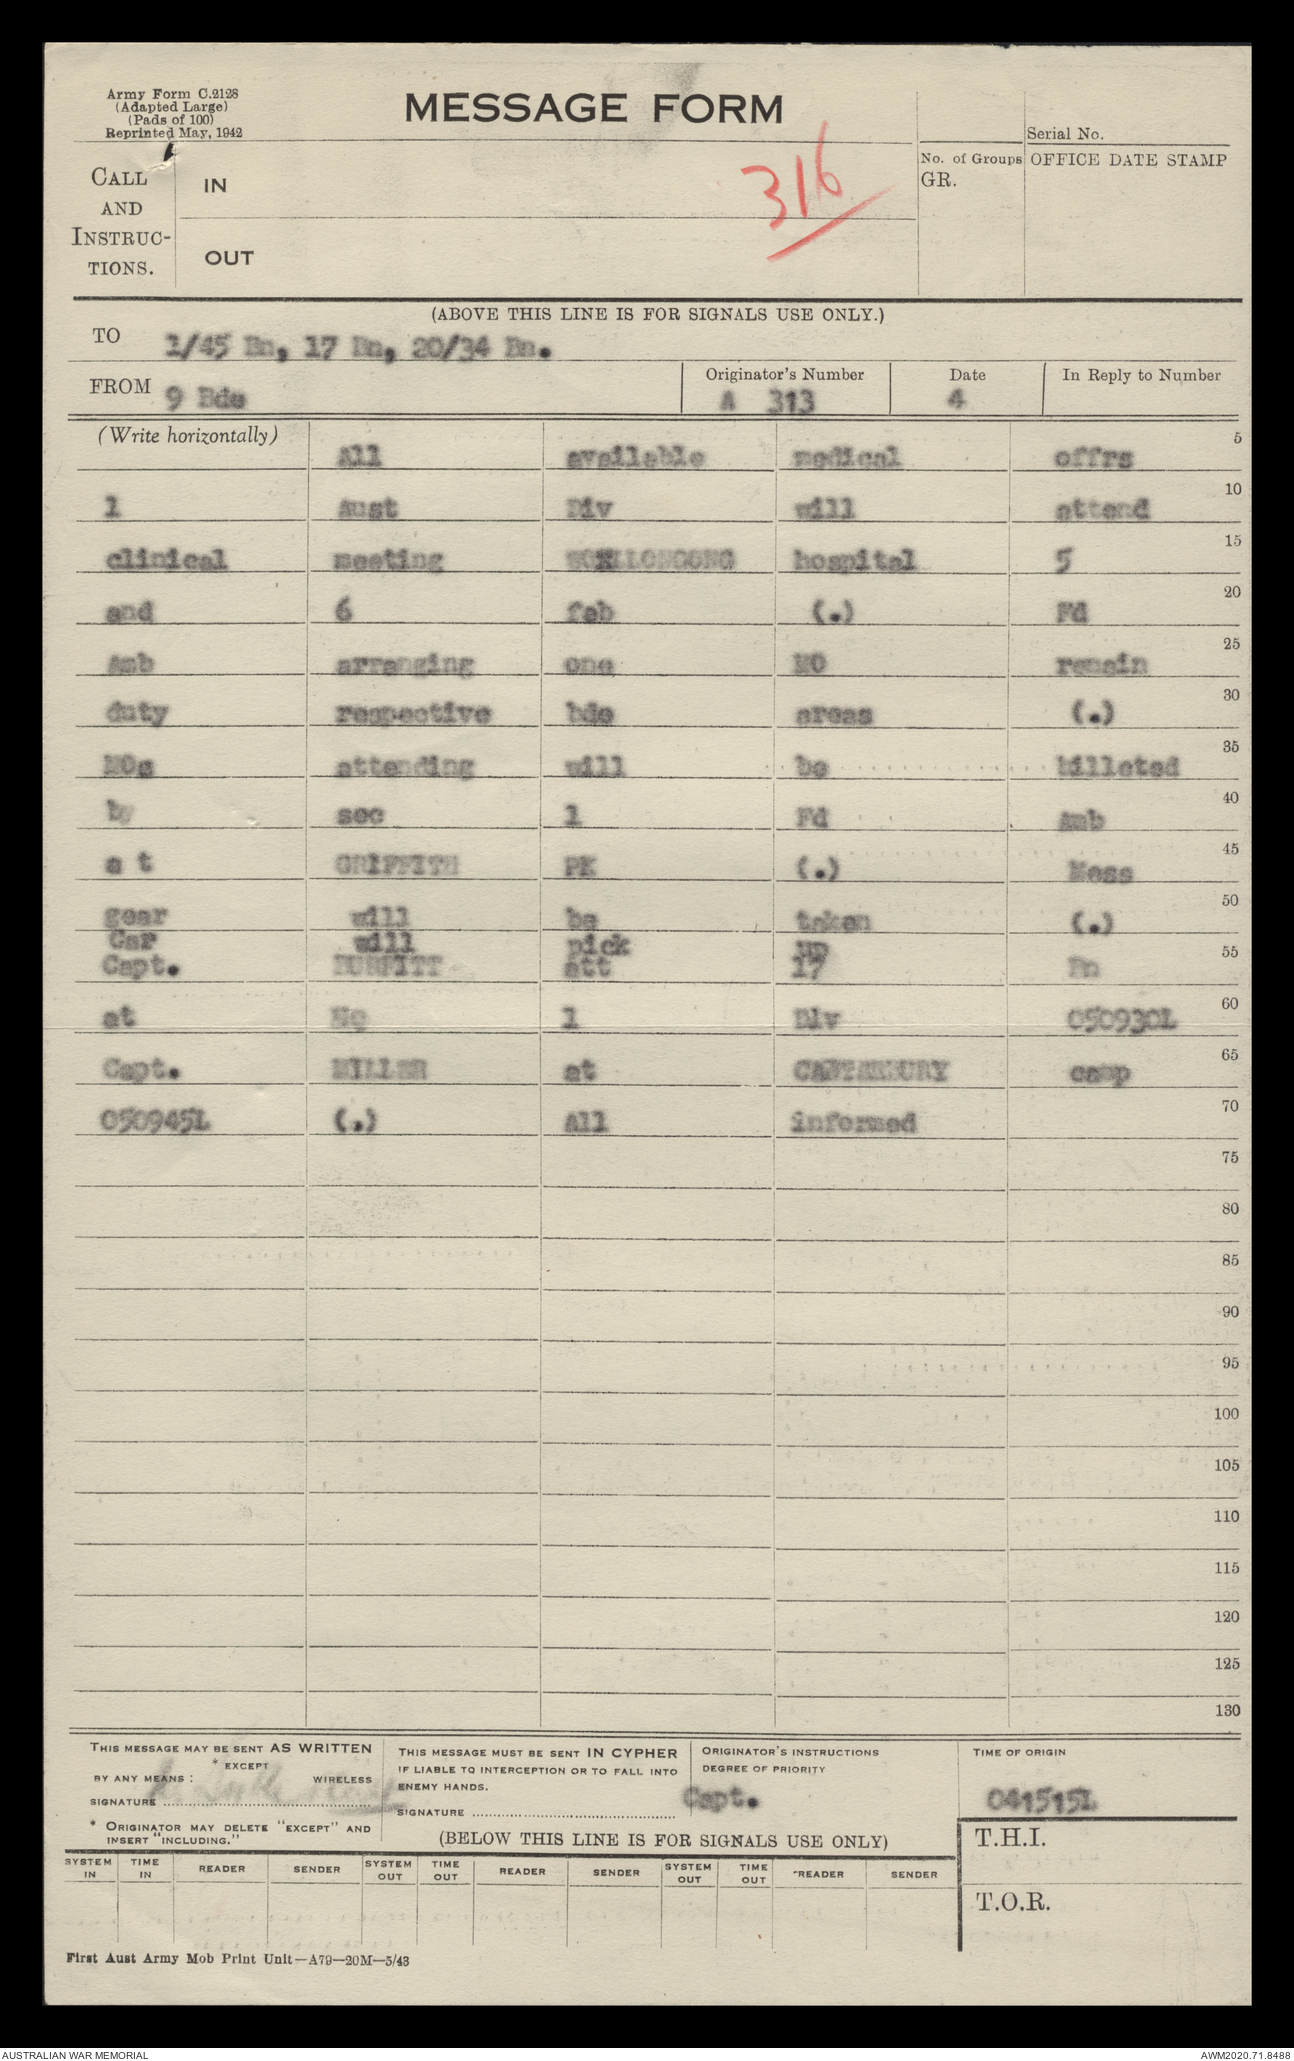 Army Form C.2128
(Adapted Large)
(Pads of 100)
Reprinted May, 1942
MESSAGE FORM
316
Serial No.
CALL AND INSTRUC-TIONS.
IN
OUT
No. of Groups
GR.
OFFICE DATE STAMP
(ABOVE THIS LINE IS FOR SIGNALS USE ONLY.)
TO 1/45 Bn, 17 Bn, 20/34 Bn.
FROM 9 Bde
Originator's Number A 313
Date 4
In Reply to Number
(Write horizontally) All available medical offrs 5
1 Aust Div will attend 10
clinical meeting hospital 5 15
and 6 feb (.) Fd 20
Amb arranging one MO remain 25
duty respective bde areas (.) 30
MOs attending will be billeted 35
by sec 1 Fd Amb 40
a t GRIFFITH PK (.) Mess 45
gear will be taken (.) 50
Car will pick up
Capt. att 17 Bn 55
at Hq 1 Div 050930L 60
Capt. MILLER at CANTERBURY camp 65
050945L (.) All informed 70
75
80
85
90
95
100
105
110
115
120
125
130
THIS MESSAGE MAY BE SENT AS WRITTEN
* EXCEPT
BY ANY MEANS : WIRELESS
SIGNATURE
* ORIGINATOR MAY DELETE "EXCEPT" AND
INSERT "INCLUDING."
THIS MESSAGE MUST BE SENT IN CYPHER
IF LIABLE TO INTERCEPTION OR TO FALL INTO
ENEMY HANDS.
SIGNATURE
Capt.
ORIGINATOR'S INSTRUCTIONS
DEGREE OF PRIORITY
TIME OF ORIGIN
041515L
(BELOW THIS LINE IS FOR SIGNALS USE ONLY)
T.H.I.
T.O.R.
SYSTEM IN TIME IN READER SENDER SYSTEM OUT TIME OUT READER SENDER SYSTEM OUT TIME OUT READER SENDER
First Aust Army Mob Print Unit—A79—20M—5/43
AUSTRALIAN WAR MEMORIAL
AWM2020.71.8488